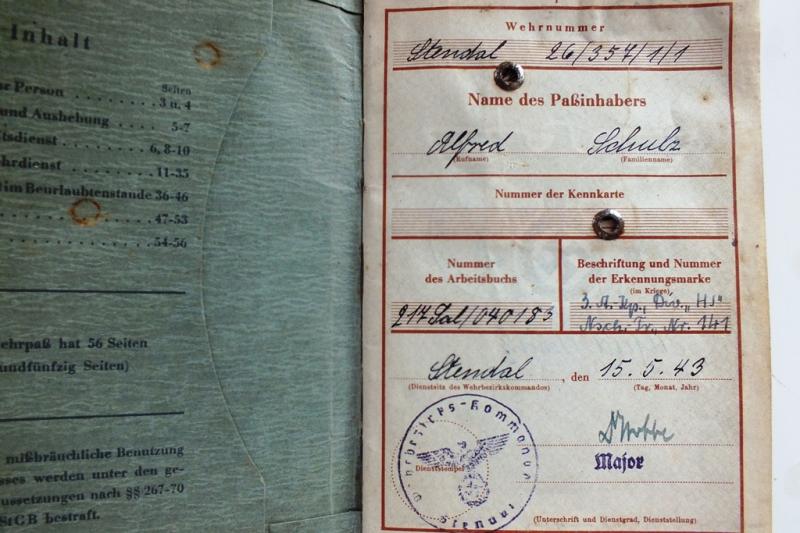 Inhalt
Seiten
Person . . . . . . . . . 3 u. 4
und Aushebung . . . . . . 5-7
. . . . . . . . . 6, 8-10
. . . . . . . . . 11-35
im Beurlaubtenstande 36-46
. . . . . . . . . 47-53
. . . . . . . . . 54-56
ehrpaß hat 56 Seiten
undfünfzig Seiten)
mißbräuchliche Benutzung
sses werden unter den ge-
ussetzungen nach §§ 267-70
StGB bestraft.
Wehrnummer
Stendal 26/357/1/1
Name des Paßinhabers
Alfred Schulz
(Rufname) (Familienname)
Nummer der Kennkarte
Nummer
des Arbeitsbuchs
217 Sal/040183
Beschriftung und Nummer
der Erkennungsmarke
(im Kriege)
3. A. Kp., Div. „HJ"
Nsch. Tr., Nr. 141
Stendal, den 15. 5. 43
(Dienstsitz des Wehrbezirkskommandos) (Tag, Monat, Jahr)
Wehrbezirks-Kommando Stendal
Dienststempel
Major
(Unterschrift und Dienstgrad, Dienststellung)